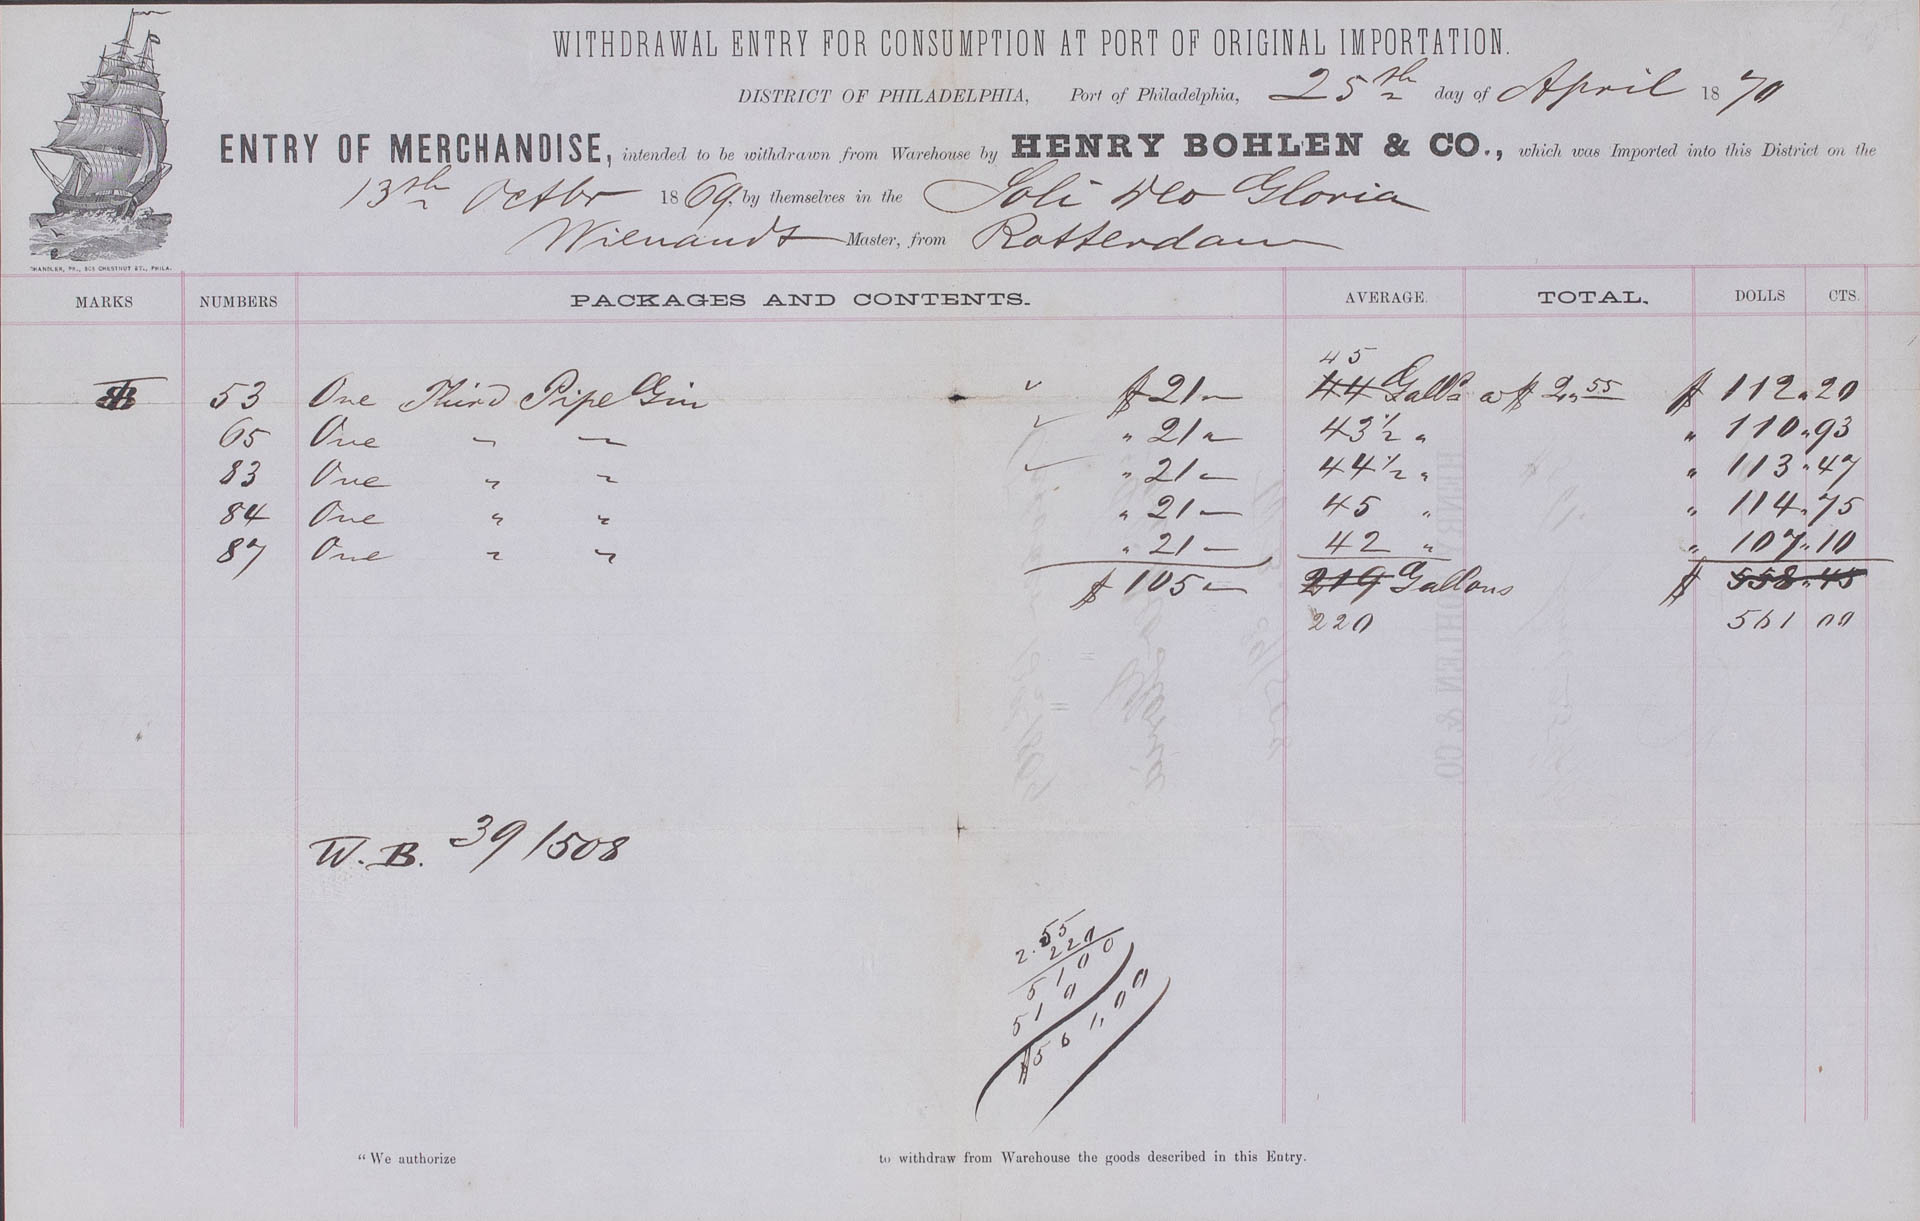 WITHDRAWAL ENTRY FOR CONSUMPTION AT PORT OF ORIGINAL IMPORTATION.
DISTRICT OF PHILADELPHIA, Port of Philadelphia, 25th day of April 1870
ENTRY OF MERCHANDISE, intended to be withdrawn from Warehouse by HENRY BOHLEN & CO., which was Imported into this District on the
13th Octbr 1869, by themselves in the Soli Deo Gloria
Wienandt Master, from Rotterdam
CHANDLER, PR., 306 CHESTNUT ST., PHILA.
MARKS NUMBERS PACKAGES AND CONTENTS. AVERAGE. TOTAL. DOLLS CTS.
45
53 One Third Pipe Gin $ 21 " 44 Galls a $ 2,,55 $ 112 " 20
65 One " " " 21 " 43 1/2 " " 110 " 93
83 One " " " 21 " 44 1/2 " " 113 " 47
84 One " " " 21 " 45 " " 114 " 75
87 One " " " 21 " 42 " " 107 " 10
$ 105 " 219 Gallons $ 558 " 45
220 561 00
W. B. 39/1508
2.55
220
5100
510
$561,00
HENRY BOHLEN & CO
"We authorize to withdraw from Warehouse the goods described in this Entry.